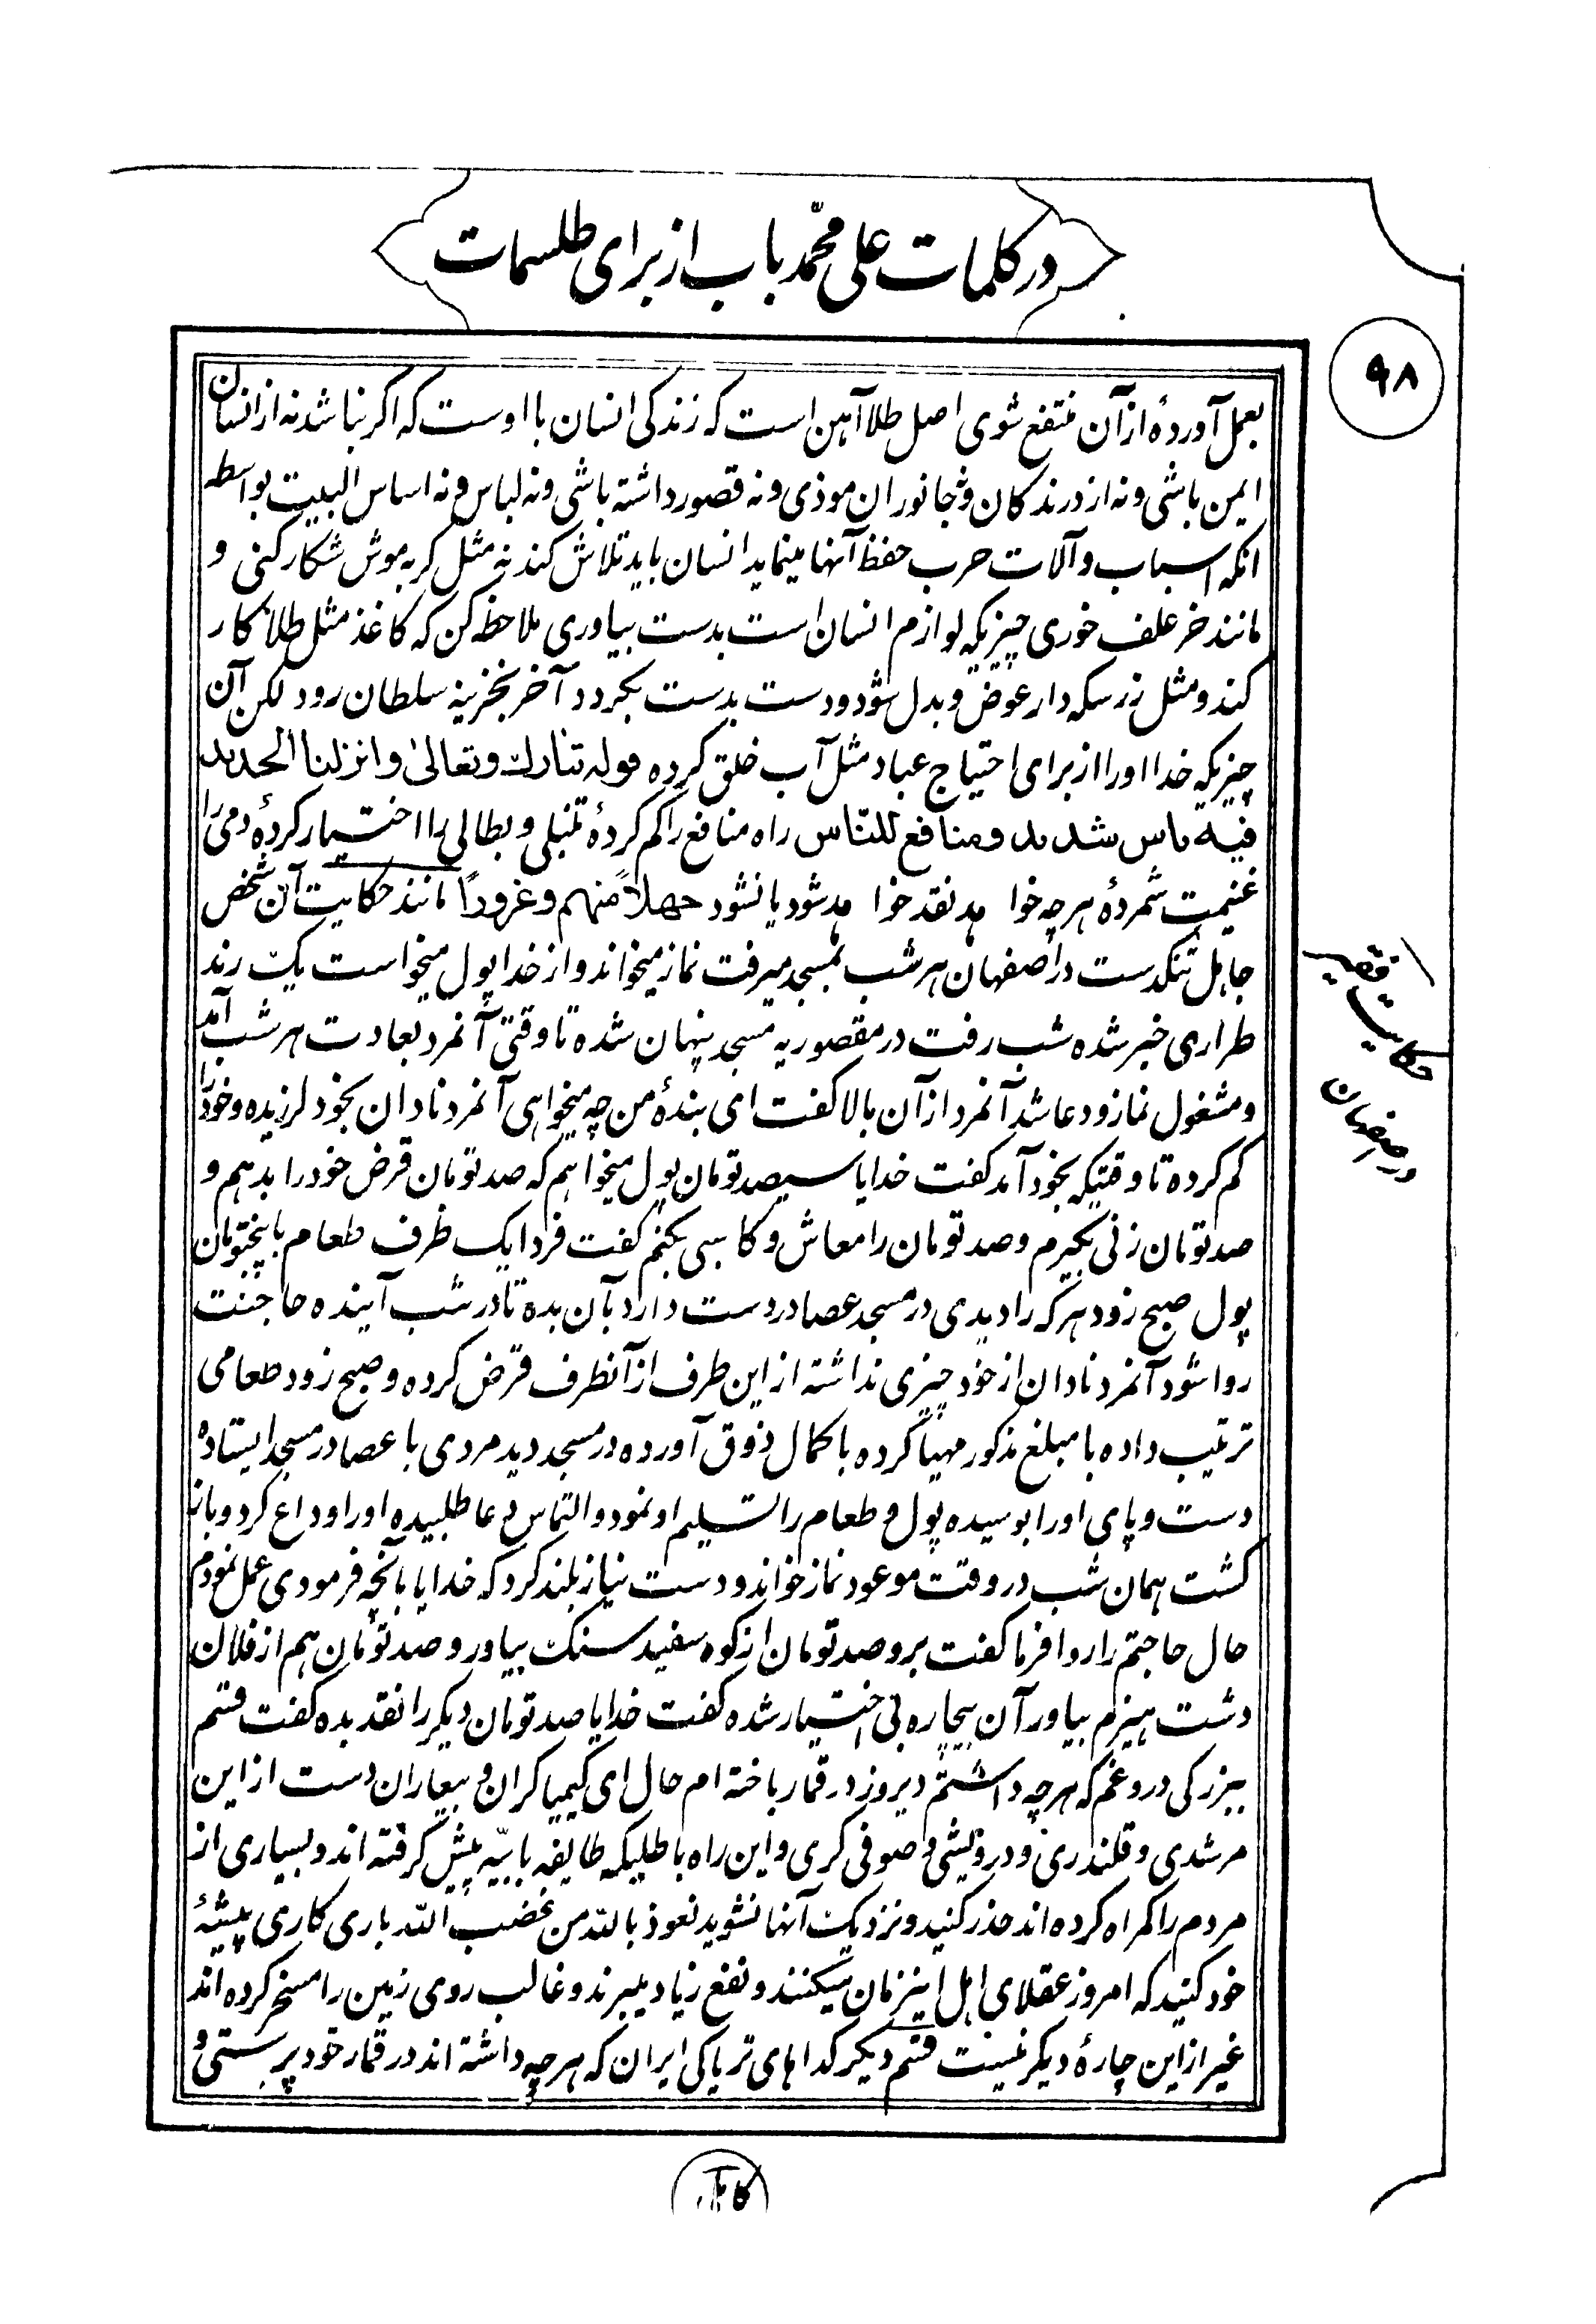 در کلمات علی محمّد باب از برای طلسمات
۹۸
بعمل آوردهٔ از آن منتفع شوی اصل طلا آهن است که زندکی انسان با اوست که اکر نباشد نه از انسان
ایمن باشی و نه از درندکان و جانوران موذی و نه قصور داشته باشی و نه لباس و نه اساس البیت بواسطه
انکه اسباب و آلات حرب حفظ آنها مینماید انسان باید تلاش کند نه مثل کربه موش شکار کنی و
مانند خر علف خوری چیزیکه لوازم انسان است بدست بیاوری ملاحظه کن که کاغذ مثل طلا کار
کند و مثل زر سکه دار عوض و بدل شود و دست بدست بکردد آخر بخزینه سلطان رود لکن آن
چیزیکه خدا او را از برای احتیاج عباد مثل آب خلق کرده قوله تبارك وتعالی وانزلنا الحدید
فیه باس شدید ومنافع للنّاس راه منافع را کم کردهٔ تنبلی و بطالی را اختیار کردهٔ دمی را
غنیمت شمردهٔ هر چه خواهد نقد خواهد شود یا نشود جهلاً منهم وغروراً مانند حکایت آن شخص
جاهل تنکدست در اصفهان هر شب بمسجد میرفت نماز میخواند و از خدا پول میخواست یک رند
طراری خبر شده شب رفت در مقصوریه مسجد پنهان شده تا وقتی آنمرد بعادت هر شب آمد
و مشغول نماز و دعا شد آنمرد از آن بالا کفت ای بندهٔ من چه میخواهی آنمرد نادان بخود لرزیده و خود را
کم کرده تا وقتیکه بخود آمد کفت خدایا سیصد تومان پول میخواهم که صد تومان قرض خود را بدهم و
صد تومان زنی بکیرم و صد تومان را معاش و کاسبی بکنم کفت فردا یک ظرف طعام با پنجتومان
پول صبح زود هر که را دیدی در مسجد عصا در دست دارد بآن بده تا در شب آینده حاجتت
روا شود آنمرد نادان از خود چیزی نداشته از این طرف از آنطرف قرض کرده و صبح زود طعامی
ترتیب داده با مبلغ مذکور مهیّا کرده با کمال ذوق آورده در مسجد دید مردی با عصا در مسجد ایستاده
دست و پای او را بوسیده پول و طعام را تسلیم او نمود و التماس دعا طلبیده او را وداع کرد و باز
کشت همان شب در وقت موعود نماز خواند و دست نیاز بلند کرد که خدایا بآنچه فرمودی عمل نمودم
حال حاجتم را روا فرما کفت برو صد تومان از کوه سفید سنک بیاور و صد تومان هم از فلان
دشت هیزم بیاور آن بیچاره بی اختیار شده کفت خدایا صد تومان دیکر را نقد بده کفت قسم
ببزرکی دروغم که هر چه داشتم دیروز در قمار باخته ام حال ای کیمیاکران و بیعاران دست از این
مرشدی و قلندری و درویشی و صوفی کری و این راه باطلیکه طایفه بابیّه پیش کرفته اند و بسیاری از
مردم را کمراه کرده اند حذر کنید و نزدیک آنها نشوید نعوذ بالله من غضب الله باری کاری پیشهٔ
خود کنید که امروز عقلای اهل اینزمان میکنند و نفع زیاد میبرند و غالب روی زمین را مسخر کرده اند
غیر از این چارهٔ دیکر نیست قسم دیکر کداهای تریاکی ایران که هر چه داشته اند در قمار خود پرستی و
حکایت فقیر
در اصفهان